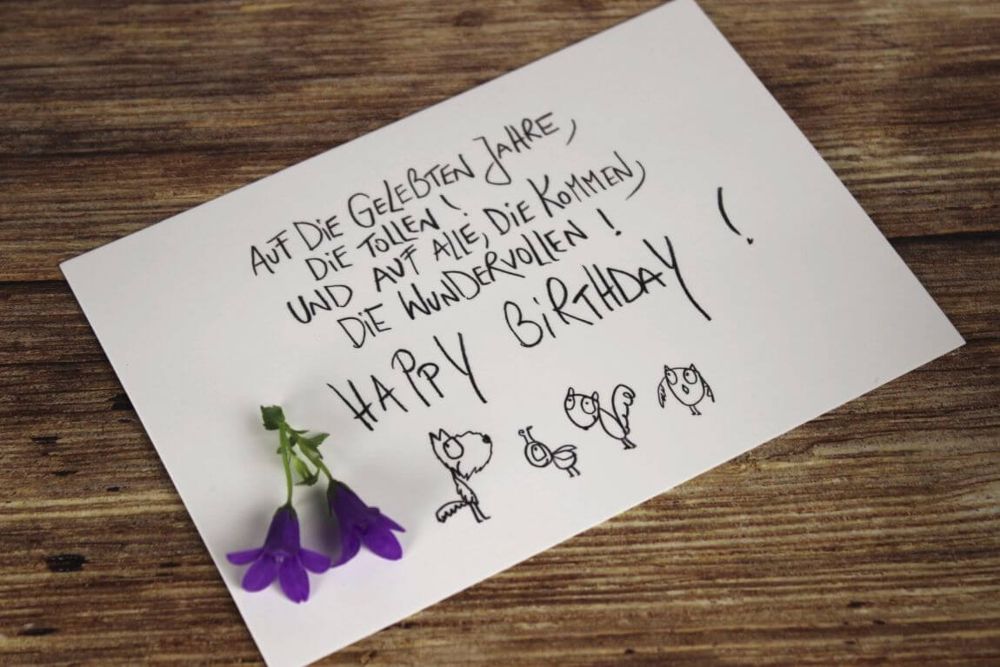 Auf die gelebten Jahre,
die tollen!
und auf alle, die kommen,
die wundervollen!
Happy Birthday!